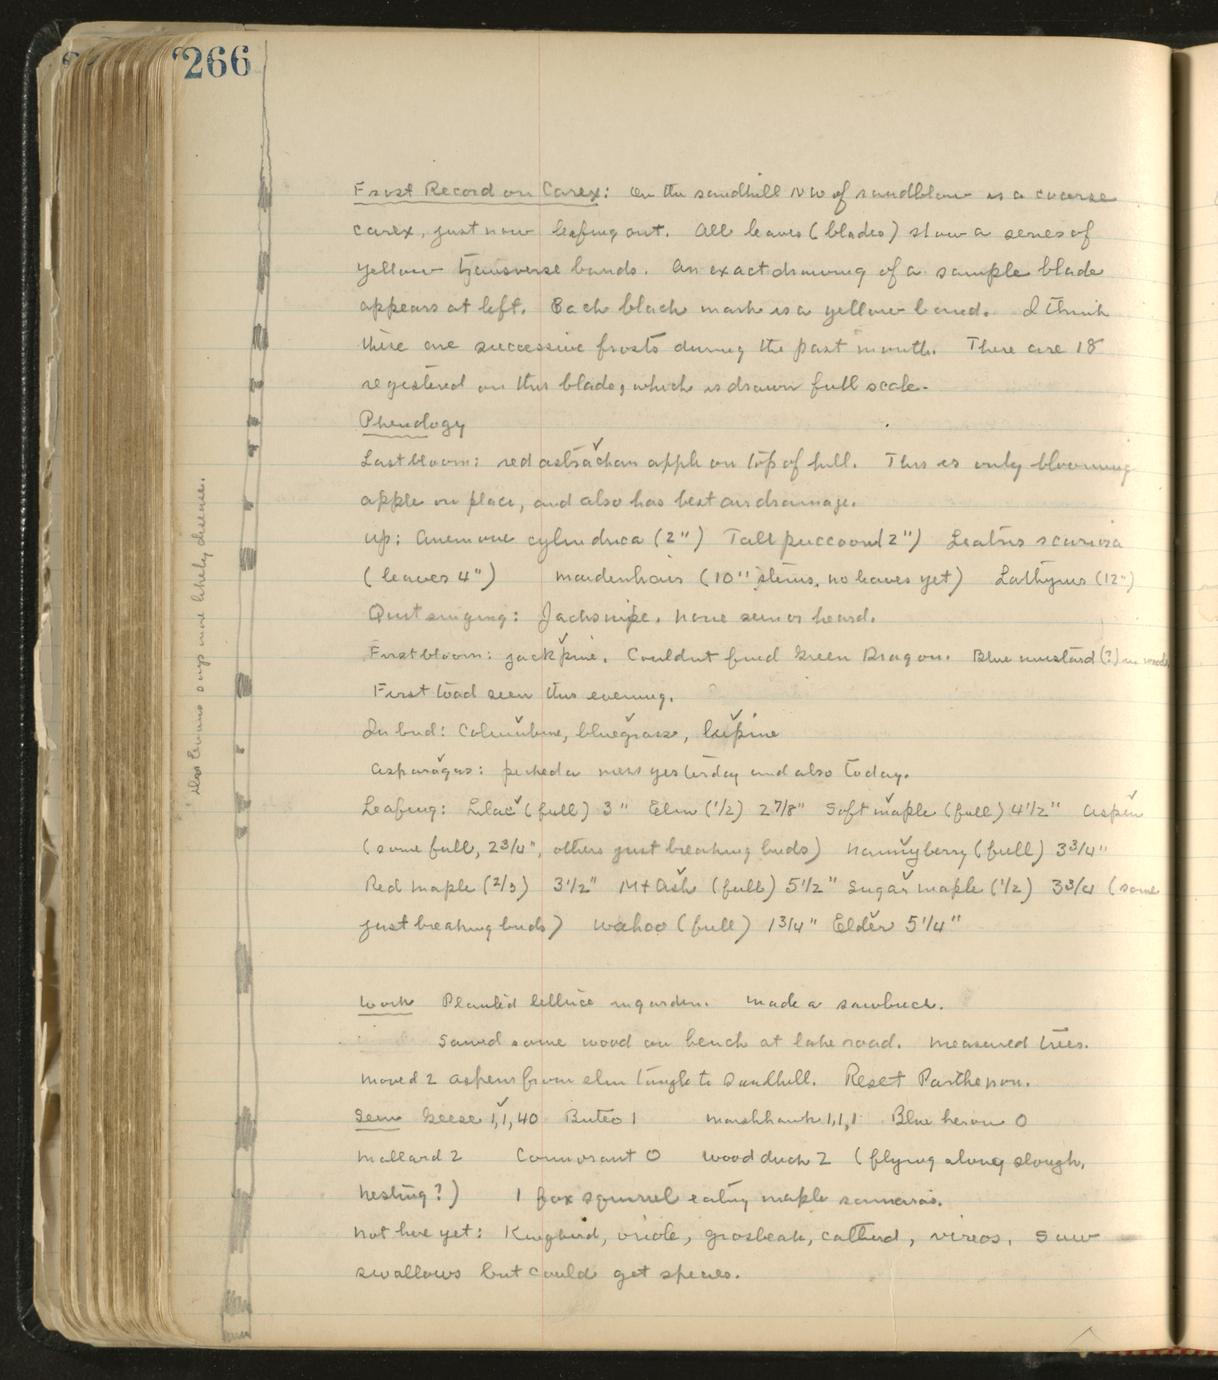 266
Frost Record on Carex: On the sandhill NW of sandblow is a coarse
carex, just now leafing out. All leaves (blades) show a series of
yellow transverse bands. An exact drawing of a sample blade
appears at left. Each black mark is a yellow band. I think
these are successive frosts during the past month. There are 18
registered on this blade, which is drawn full scale.
Phenology
Last bloom: red astrachan apple on top of hill. This is only blooming
apple on place, and also has best air drainage.
Up: Anemone cylindrica (2") Tall puccoon (2") Leatris scariosa
(leaves 4") maidenhair (10" stems, no leaves yet) Lathyrus (12")
Quit singing: Jacksnipe. None seen or heard.
First bloom: jackpine. Couldnt find Green Dragon. Blue mustard (?) in woods
First toad seen this evening.
In bud: Columbine, bluegrass, lupine
Asparagus: picked a mess yesterday and also today.
Leafing: Lilac (full) 3" Elm (1/2) 2 7/8" Soft maple (full) 4 1/2" aspen
(some full, 2 3/4", others just breaking buds) Nannyberry (full) 3 3/4"
Red maple (2/3) 3 1/2" Mt Ash (full) 5 1/2" Sugar maple (1/2) 3 3/4 (some
just breaking buds) wahoo (full) 1 3/4" Elder 5 1/4"
Work Planted lettuce in garden. Made a sawbuck.
Sawed some wood on bench at lake road. Measured trees.
Moved 2 aspens from elm tangle to Sandhill. Reset Parthenon.
Seen Geese 1,1,40 Buteo 1 Marshhawk 1,1,1 Blue heron 0
Mallard 2 Cormorant 0 Woodduck 2 (flying along slough,
nesting?) 1 fox squirrel eating maple samaras.
Not here yet: Kingbird, oriole, grosbeak, catbird, vireos. Saw
swallows but could get species.
says more likely disease.